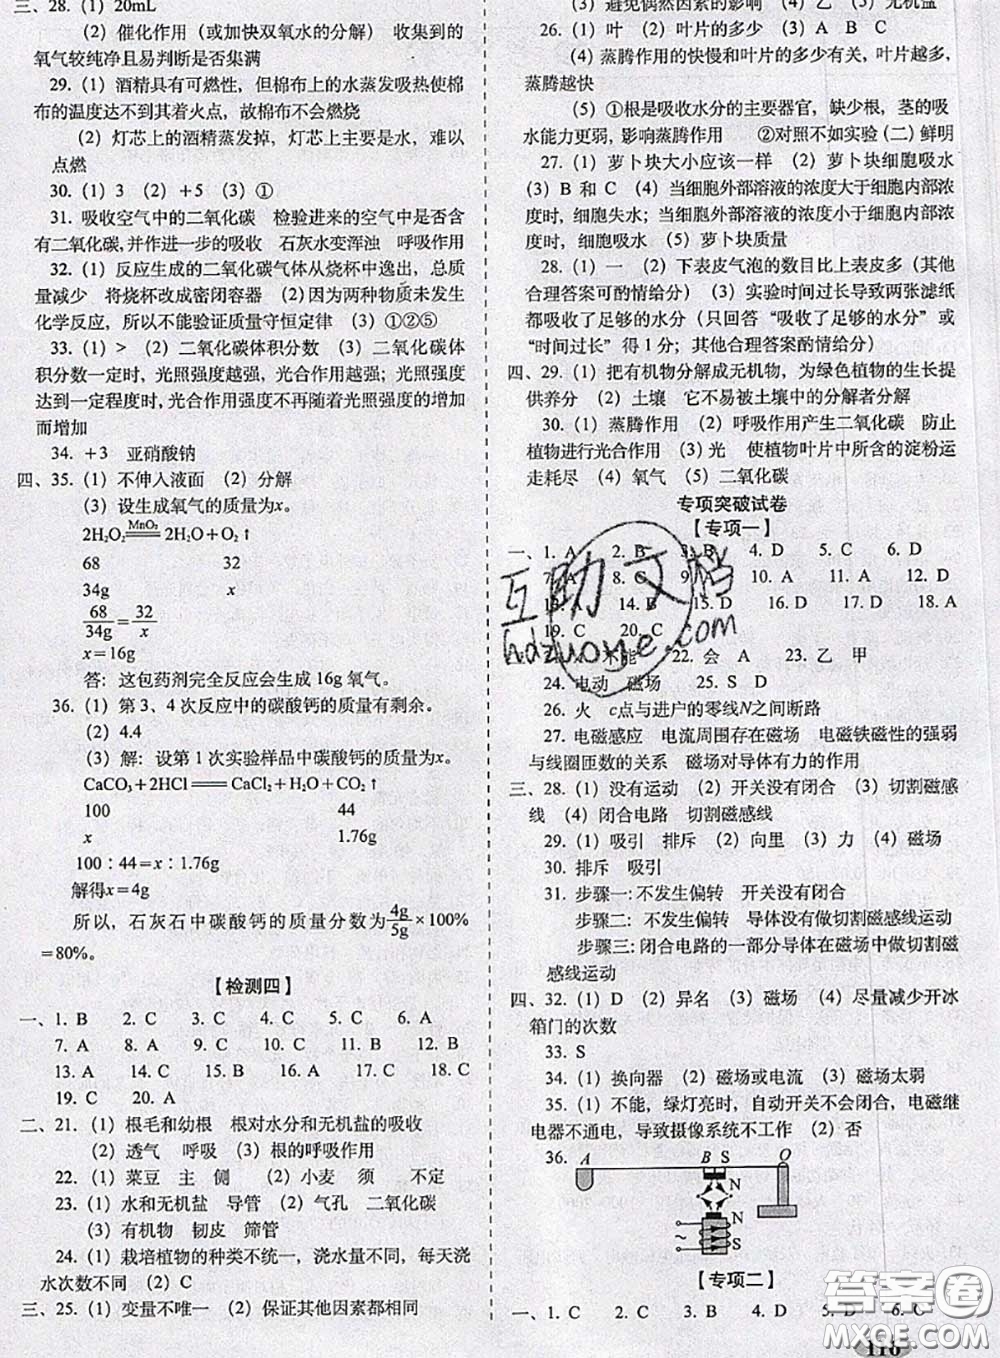 三、28. (1) 20mL
(2) 催化作用（或加快双氧水的分解） 收集到的
氧气较纯净且易判断是否集满
29. (1) 酒精具有可燃性，但棉布上的水蒸发吸热使棉
布的温度达不到其着火点，故棉布不会燃烧
(2) 灯芯上的酒精蒸发掉，灯芯上的主要是水，难以
点燃
30. (1) 3 (2) +5 (3) ①
31. 吸收空气中的二氧化碳 检验进来的空气中是否含
有二氧化碳,并作进一步的吸收 石灰水变浑浊 呼吸作用
32. (1) 反应生成的二氧化碳气体从烧杯中逸出，总质
量减少 将烧杯改成密闭容器 (2)因为两种物质未发生
化学反应，所以不能验证质量守恒定律 (3) ①②⑤
33. (1) > (2) 二氧化碳体积分数 (3) 二氧化碳体
积分数一定时,光照强度越强,光合作用越强；光照强度
达到一定程度时,光合作用强度不再随着光照强度的增加
而增加
34. +3 亚硝酸钠
四、35. (1) 不伸入液面 (2) 分解
(3) 设生成氧气的质量为x。
2H₂O₂ =MnO₂= 2H₂O+O₂↑
68 32
34g x
68/34g = 32/x
x=16g
答：这包药剂完全反应会生成 16g 氧气。
36. (1) 第 3、4 次反应中的碳酸钙的质量有剩余。
(2) 4.4
(3) 解：设第 1 次实验样品中碳酸钙的质量为x。
CaCO₃+2HCl══CaCl₂+H₂O+CO₂↑
100 44
x 1.76g
100∶44=x∶1.76g
解得x=4g
所以，石灰石中碳酸钙的质量分数为4g/5g×100%
=80%。
【检测四】
一、1. B 2. C 3. C 4. C 5. C 6. A
7. A 8. A 9. C 10. C 11. B 12. B
13. A 14. C 15. C 16. A 17. C 18. C
19. C 20. A
二、21. (1) 根毛和幼根 根对水分和无机盐的吸收
(2) 透气 呼吸 (3) 根的呼吸作用
22. (1) 菜豆 主 侧 (2) 小麦 须 不定
23. (1) 水和无机盐 导管 (2) 气孔 二氧化碳
(3) 有机物 韧皮 筛管
24. (1) 栽培植物的种类不统一，浇水量不同，每天浇
水次数不同 (2) C
三、25. (1) 变量不唯一 (2) 保证其他因素都相同
(3) 避免偶然因素的影响 (4) 乙 (5) 无机盐
26. (1) 叶 (2) 叶片的多少 (3) A B C
(4) 蒸腾作用的快慢和叶片的多少有关，叶片越多，
蒸腾越快
(5) ①根是吸收水分的主要器官，缺少根，茎的吸
水能力更弱,影响蒸腾作用 ②对照不如实验 (二) 鲜明
27. (1) 萝卜块大小应该一样 (2) 萝卜块细胞吸水
(3) B 和 C (4) 当细胞外部溶液的浓度大于细胞内部浓
度时，细胞失水；当细胞外部溶液的浓度小于细胞内部
浓度时，细胞吸水 (5) 萝卜块质量
28. (1) 一 (2) 下表皮气泡的数目比上表皮多（其他
合理答案可酌情给分） (3) 实验时间过长导致两张滤纸
都吸收了足够的水分（只回答“吸收了足够的水分”或
“时间过长”得 1 分；其他合理答案酌情给分）
四、29. (1) 把有机物分解成无机物，为绿色植物的生长提
供养分 (2) 土壤 它不易被土壤中的分解者分解
30. (1) 蒸腾作用 (2) 呼吸作用产生二氧化碳 防止
植物进行光合作用 (3) 光 使植物叶片中所含的淀粉运
走耗尽 (4) 氧气 (5) 二氧化碳
专项突破试卷
【专项一】
一、1. A 2. B 3. B 4. D 5. C 6. D
7. A 8. C 9. A 10. A 11. A 12. D
13. A 14. B 15. D 16. D 17. D 18. A
19. C 20. C
不能 22. 会 A 23. 乙 甲
24. 电动 磁场 25. S D
26. 火 c点与进户的零线N之间断路
27. 电磁感应 电流周围存在磁场 电磁铁磁性的强弱
与线圈匝数的关系 磁场对导体有力的作用
三、28. (1) 没有运动 (2) 开关没有闭合 (3) 切割磁感
线 (4) 闭合电路 切割磁感线
29. (1) 吸引 排斥 (2) 向里 (3) 力 (4) 磁场
30. 排斥 吸引
31. 步骤一: 不发生偏转 开关没有闭合
步骤二：不发生偏转 导体没有做切割磁感线运动
步骤三: 闭合电路的一部分导体在磁场中做切割磁
感线运动
四、32. (1) D (2) 异名 (3) 磁场 (4) 尽量减少开冰
箱门的次数
33. S
34. (1) 换向器 (2) 磁场或电流 (3) 磁场太弱
35. (1) 不能，绿灯亮时，自动开关不会闭合，电磁继
电器不通电，导致摄像系统不工作 (2) 否
36. A B S O
N
N
~ S
【专项二】
一、1. C 2. C 3. B 4. D 5. D 6. C
116
互助文档
hdzuoye.com
答案圈
MXQE.COM